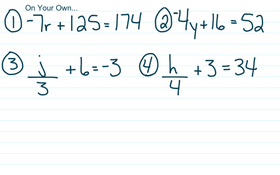 On Your Own...
① -7r + 125 = 174 ② -4y + 16 = 52
③ j/3 + 6 = -3 ④ h/4 + 3 = 34